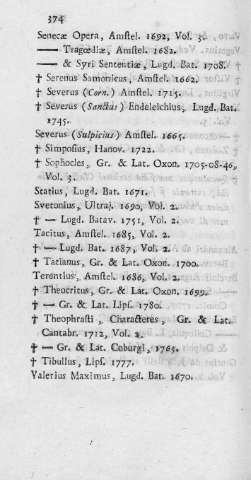 374
Senecæ Opera, Amstel. 1692, Vol. 3.
—— Tragœdiæ, Amstel. 1682.
—— & Syri Sententiæ, Lugd. Bat. 1708.
† Serenus Samonicus, Amstel. 1662.
† Severus (Corn.) Amstel. 1715.
† Severus (Sanctus) Endeleichius, Lugd. Bat.
1745.
Severus (Sulpicius) Amstel. 1665.
† Simposius, Hanov. 1722.
† Sophocles, Gr. & Lat. Oxon. 1705-08-46,
Vol. 3.
Statius, Lugd. Bat. 1671.
Svetonius, Ultraj. 1690, Vol. 2.
† — Lugd. Batav. 1751, Vol. 2.
Tacitus, Amstel. 1685, Vol. 2.
† — Lugd. Bat. 1687, Vol. 2.
† Tatianus, Gr. & Lat. Oxon. 1700.
Terentius, Amstel. 1686, Vol. 2.
† Theocritus, Gr. & Lat. Oxon. 1699.
† — Gr. & Lat. Lips. 1780.
† Theophrasti, Characteres, Gr. & Lat.
Cantabr. 1712, Vol. 2.
† — Gr. & Lat. Coburgi, 1763.
† Tibullus, Lips. 1777.
Valerius Maximus, Lugd. Bat. 1670.